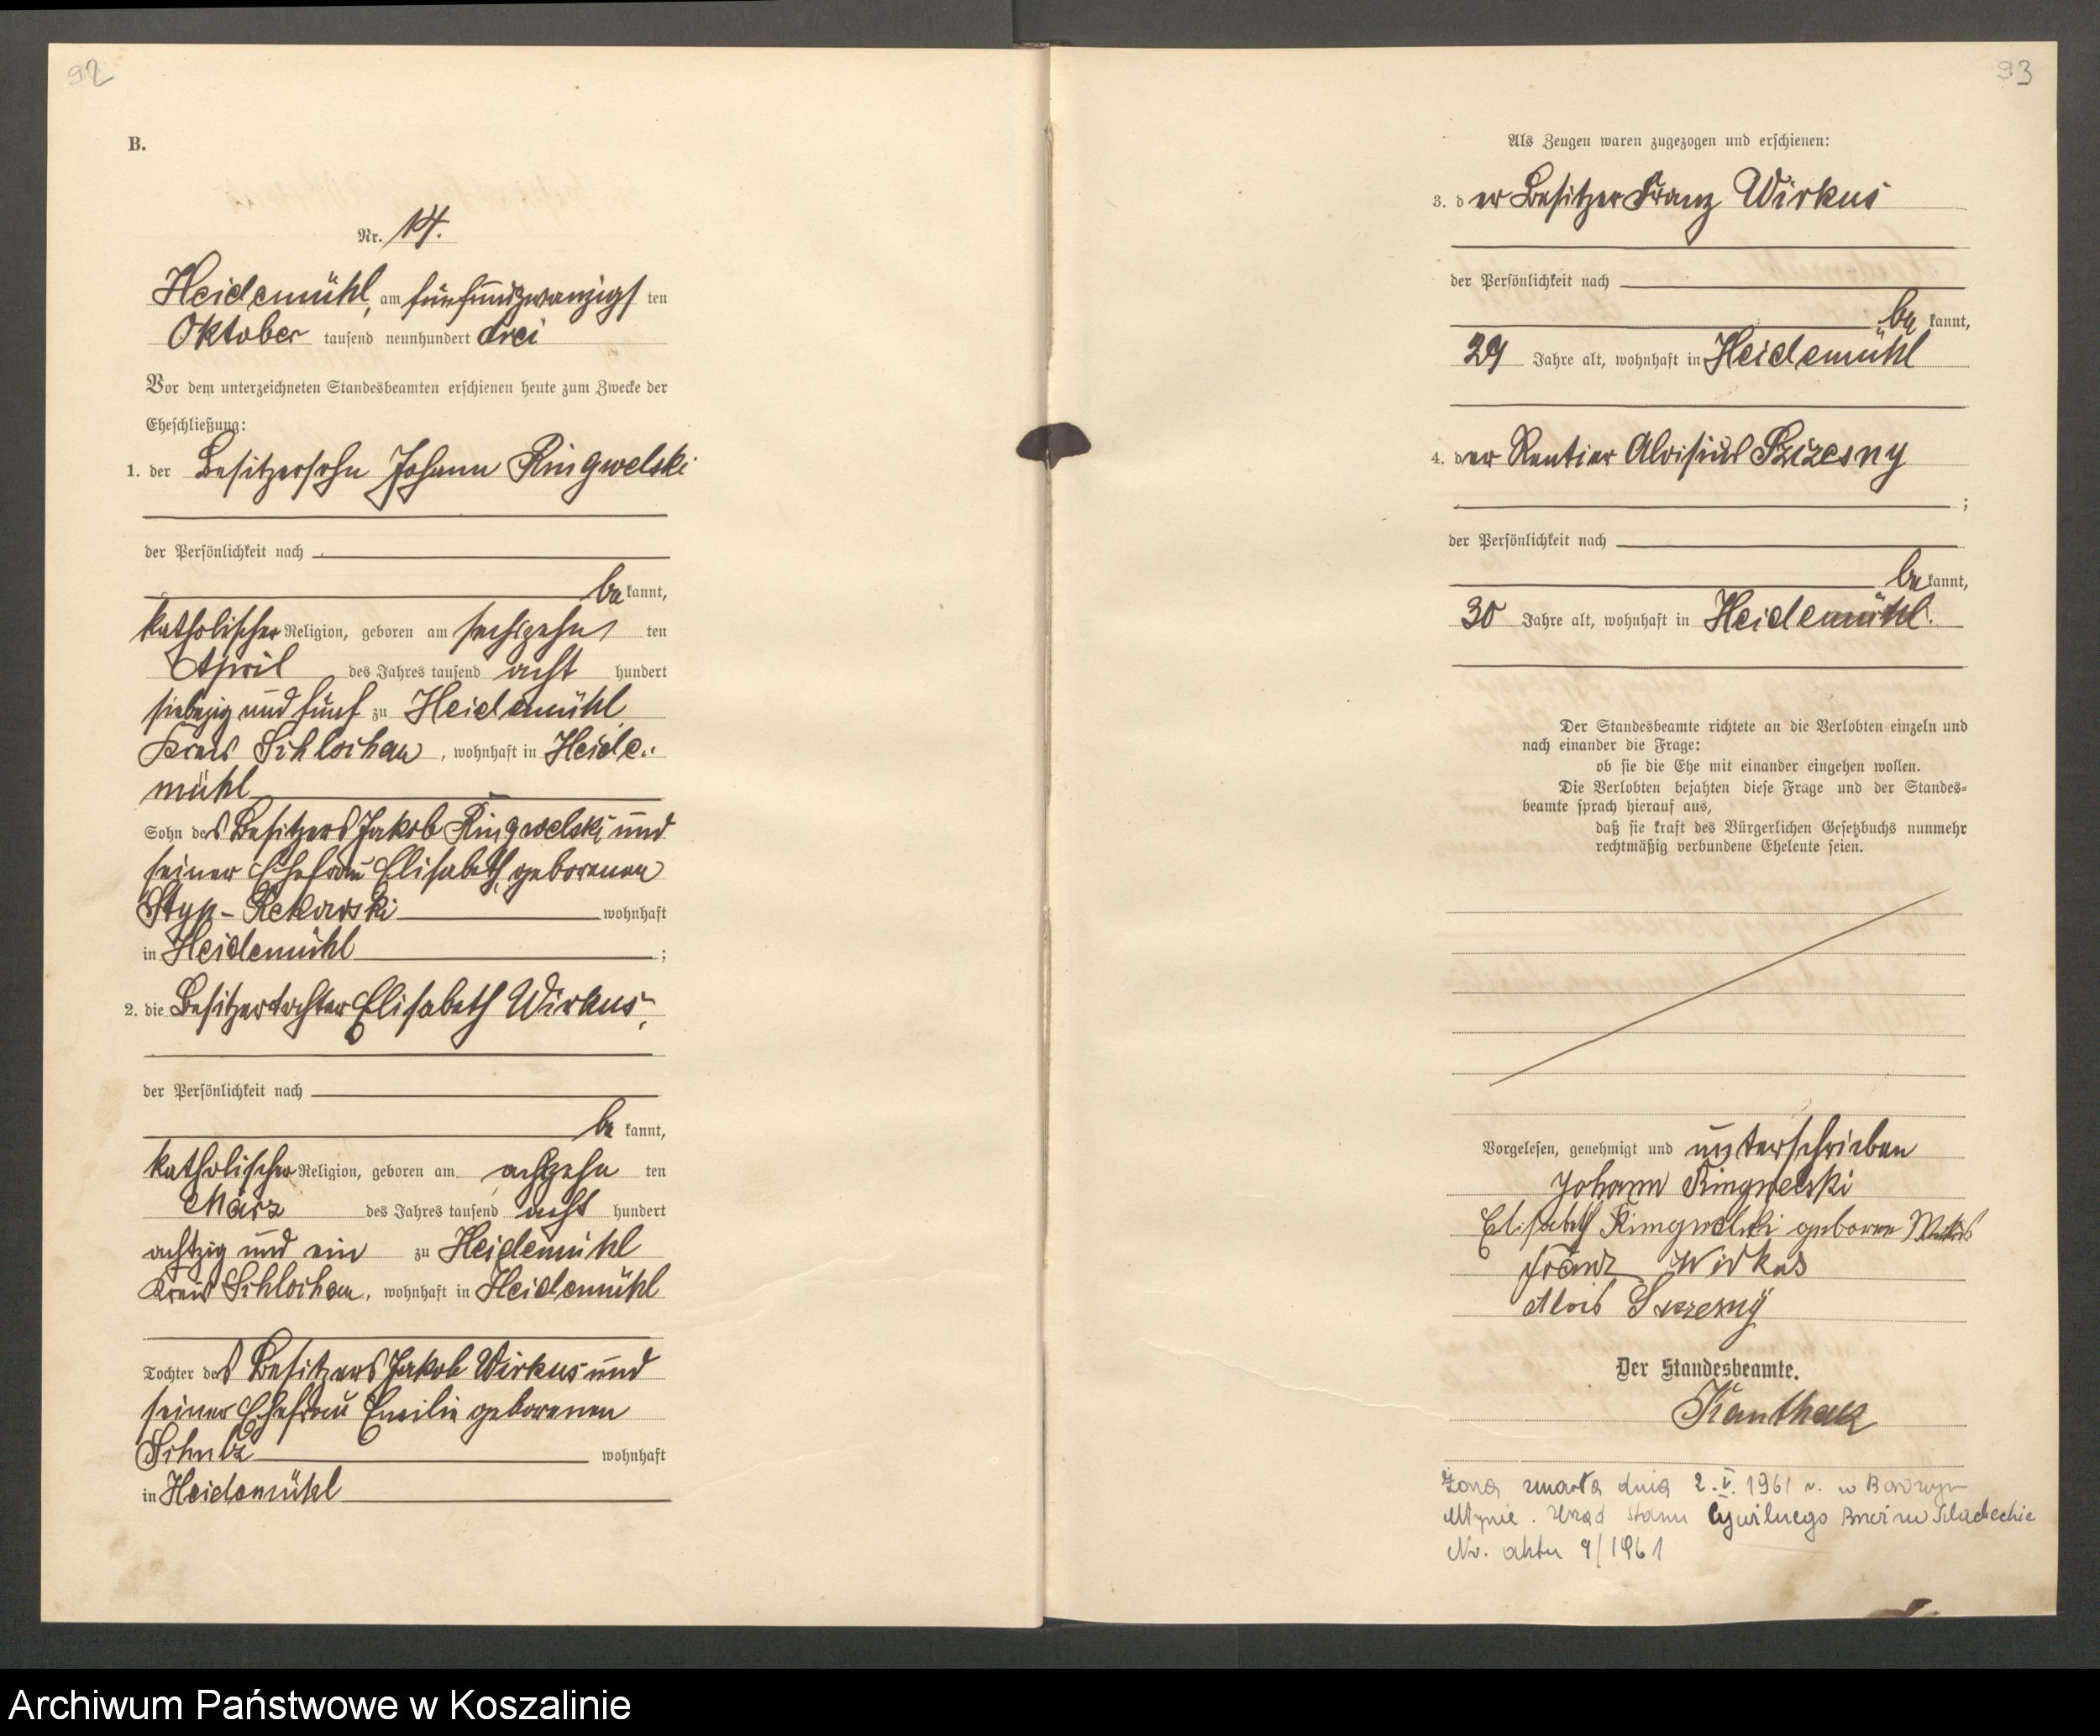 92
B.
Nr. 14.
Heidemühl, am fünfundzwanzigsten
Oktober tausend neunhundert drei
Vor dem unterzeichneten Standesbeamten erschienen heute zum Zwecke der
Eheschließung:
1. der Besitzersohn Johann Ringwelski
der Persönlichkeit nach
bekannt,
katholischer Religion, geboren am sechszehnten
April des Jahres tausend acht hundert
siebzig und fünf zu Heidemühl
Kreis Schlochau, wohnhaft in Heide-
mühl
Sohn des Besitzers Jakob Ringwelski und
seiner Ehefrau Elisabeth, geborenen
Styp-Rekowski wohnhaft
in Heidemühl ;
2. die Besitzertochter Elisabeth Wirkus,
der Persönlichkeit nach
bekannt,
katholischer Religion, geboren am achzehnten
März des Jahres tausend acht hundert
achtzig und ein zu Heidemühl
Kreis Schlochau, wohnhaft in Heidemühl
Tochter des Besitzers Jakob Wirkus und
seiner Ehefrau Emilie geborenen
Schulz wohnhaft
in Heidemühl
93
Als Zeugen waren zugezogen und erschienen:
3. der Besitzer Franz Wirkus
der Persönlichkeit nach
bekannt,
29 Jahre alt, wohnhaft in Heidemühl
4. der Rentier Aloisius Szczesny
;
der Persönlichkeit nach
bekannt,
30 Jahre alt, wohnhaft in Heidemühl.
Der Standesbeamte richtete an die Verlobten einzeln und
nach einander die Frage:
ob sie die Ehe mit einander eingehen wollen.
Die Verlobten bejahten diese Frage und der Standes=
beamte sprach hierauf aus,
daß sie kraft des Bürgerlichen Gesetzbuchs nunmehr
rechtmäßig verbundene Eheleute seien.
Vorgelesen, genehmigt und unterschrieben
Johann Ringwelski
Elisabeth Ringwelski geborene Wirkus
Franz Wirkus
Alois Szczesny
Der Standesbeamte.
Kanthak
Żona zmarła dnia 2.V.1961 r. w
Młynie. Urząd Stanu Cywilnego
Nr. aktu 9/1961
Archiwum Państwowe w Koszalinie